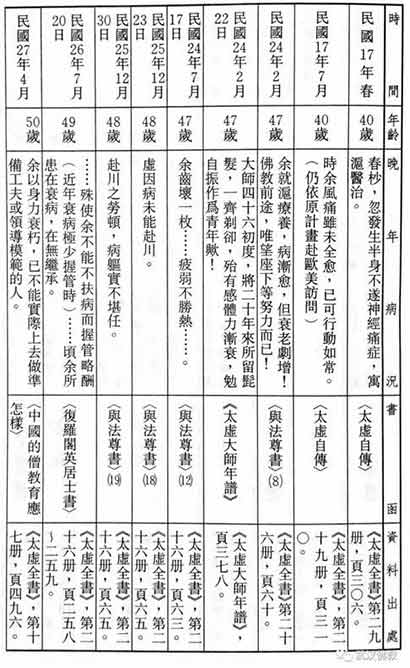 時間
年齡
晚年病況
書函
資料出處
民國17年春
40歲
春杪,忽發生半身不遂神經痛症,寓
滬醫治。
〈太虛自傳〉
《太虛全書》第二九
冊,頁三〇六。
民國17年7月
40歲
時余風痛雖未全愈,已可行動如常。
(仍依原計畫赴歐美訪問)
〈太虛自傳〉
《太虛全書》,第二
十九冊,頁三一
〇。
民國24年2月
47歲
余就滬療養,病漸愈,但衰老劇增!
佛教前途,唯望座下等努力而已!
〈與法尊書〉(8)
《太虛全書》第二十
六冊,頁六十。
民國24年2月
22日
47歲
大師四十六初度,將二十年來所留髭
髮,一齊剃卻,殆有感體力漸衰,勉
自振作爲青年歟!
《太虛大師年譜》
《太虛大師年譜》,
頁三七八。
民國24年7月
17日
47歲
余齒壞一枚……疲弱不勝熱……。
〈與法尊書〉(12)
《太虛全書》,第二
十六冊,頁六三。
民國25年12月
23日
48歲
虛因病未能赴川。
〈與法尊書〉(18)
《太虛全書》,第二
十六冊,頁六五。
民國25年12月
30日
48歲
赴川之勞頓,病軀實不堪任。
〈與法尊書〉(19)
《太虛全書》,第二
十六冊,頁六五。
民國26年7月
20日
49歲
……殊使余不能不扶病而握管略酬
(近年衰病極少握管時)……頃余所
患在衰病,在無繼承。
〈復羅閣英居士書〉
《太虛全書》,第二
十六冊,頁二五八
~二五九。
民國27年4月
50歲
余以身力衰朽,已不能實際上去做準
備工夫或領導模範的人。
〈中國的僧教育應
怎樣〉
《太虛全書》,第十
七冊,頁四九六。
武汉佛教